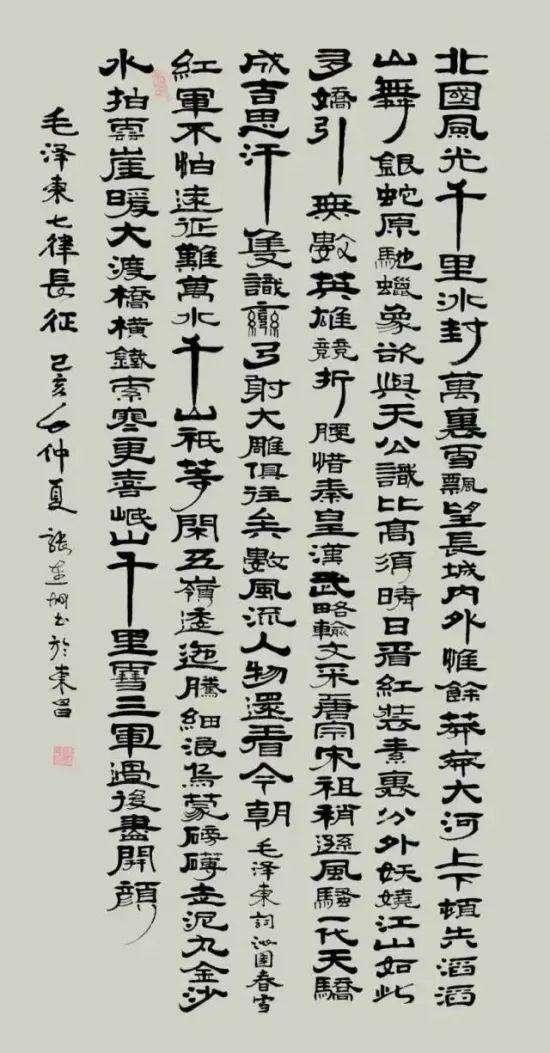 北國風光千里冰封萬裏雪飄望長城内外惟餘莽莽大河上下頓失滔滔
山舞銀蛇原馳蠟象欲與天公識比高須晴日看紅裝素裹分外妖嬈江山如此
多嬌引無數英雄競折腰惜秦皇漢武略輸文采唐宗宋祖稍遜風騷一代天驕
成吉思汗隻識彎弓射大雕俱往矣數風流人物還看今朝 毛泽東詞沁園春雪
紅軍不怕遠征難萬水千山祇等閑五嶺逶迤騰細浪烏蒙磅礴走泥丸金沙
水拍雲崖暖大渡橋橫鐵索寒更喜岷山千里雪三軍過後盡開顏
毛泽東七律長征 己亥年仲夏 張书於東昌